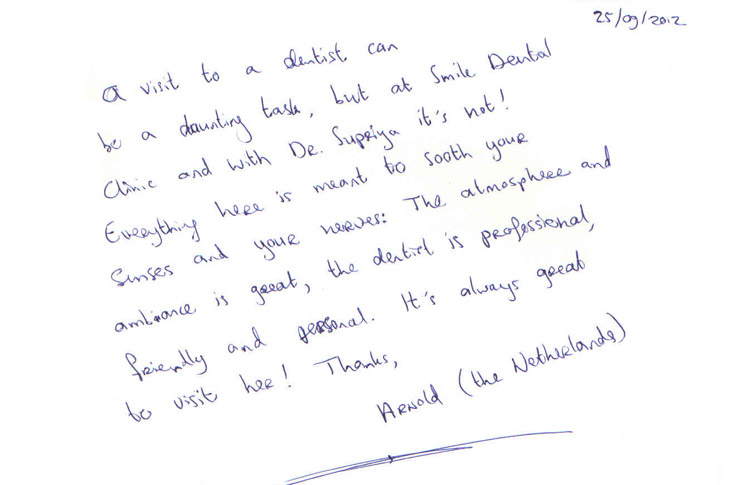 25/09/2012
a visit to a dentist can
be a daunting task, but at Smile Dental
Clinic and with Dr. Supriya it's not!
Everything here is meant to sooth your
senses and your nerves: The atmosphere and
ambiance is great, the dentist is professional,
friendly and personal. It's always great
to visit her! Thanks,
Arnold (the Netherlands)